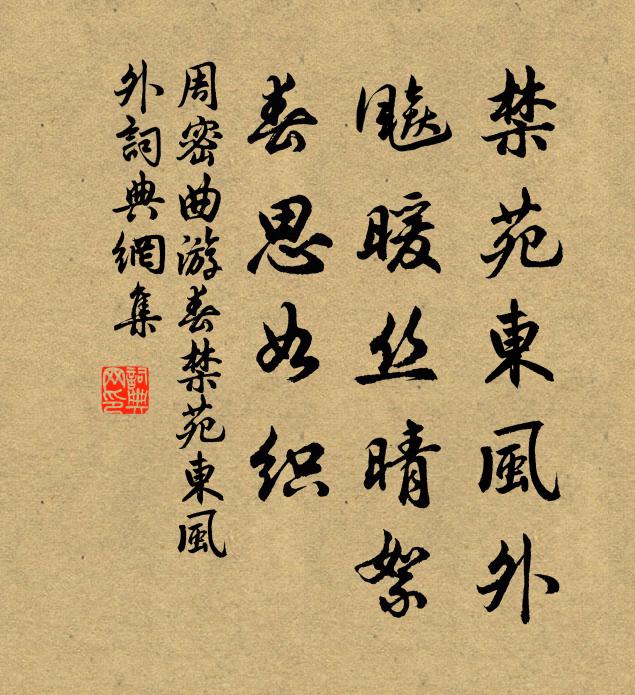 禁苑東風外
飏暖丝晴絮
春思如织
周密曲游春禁苑東風
外詞典網集
詞典
网印